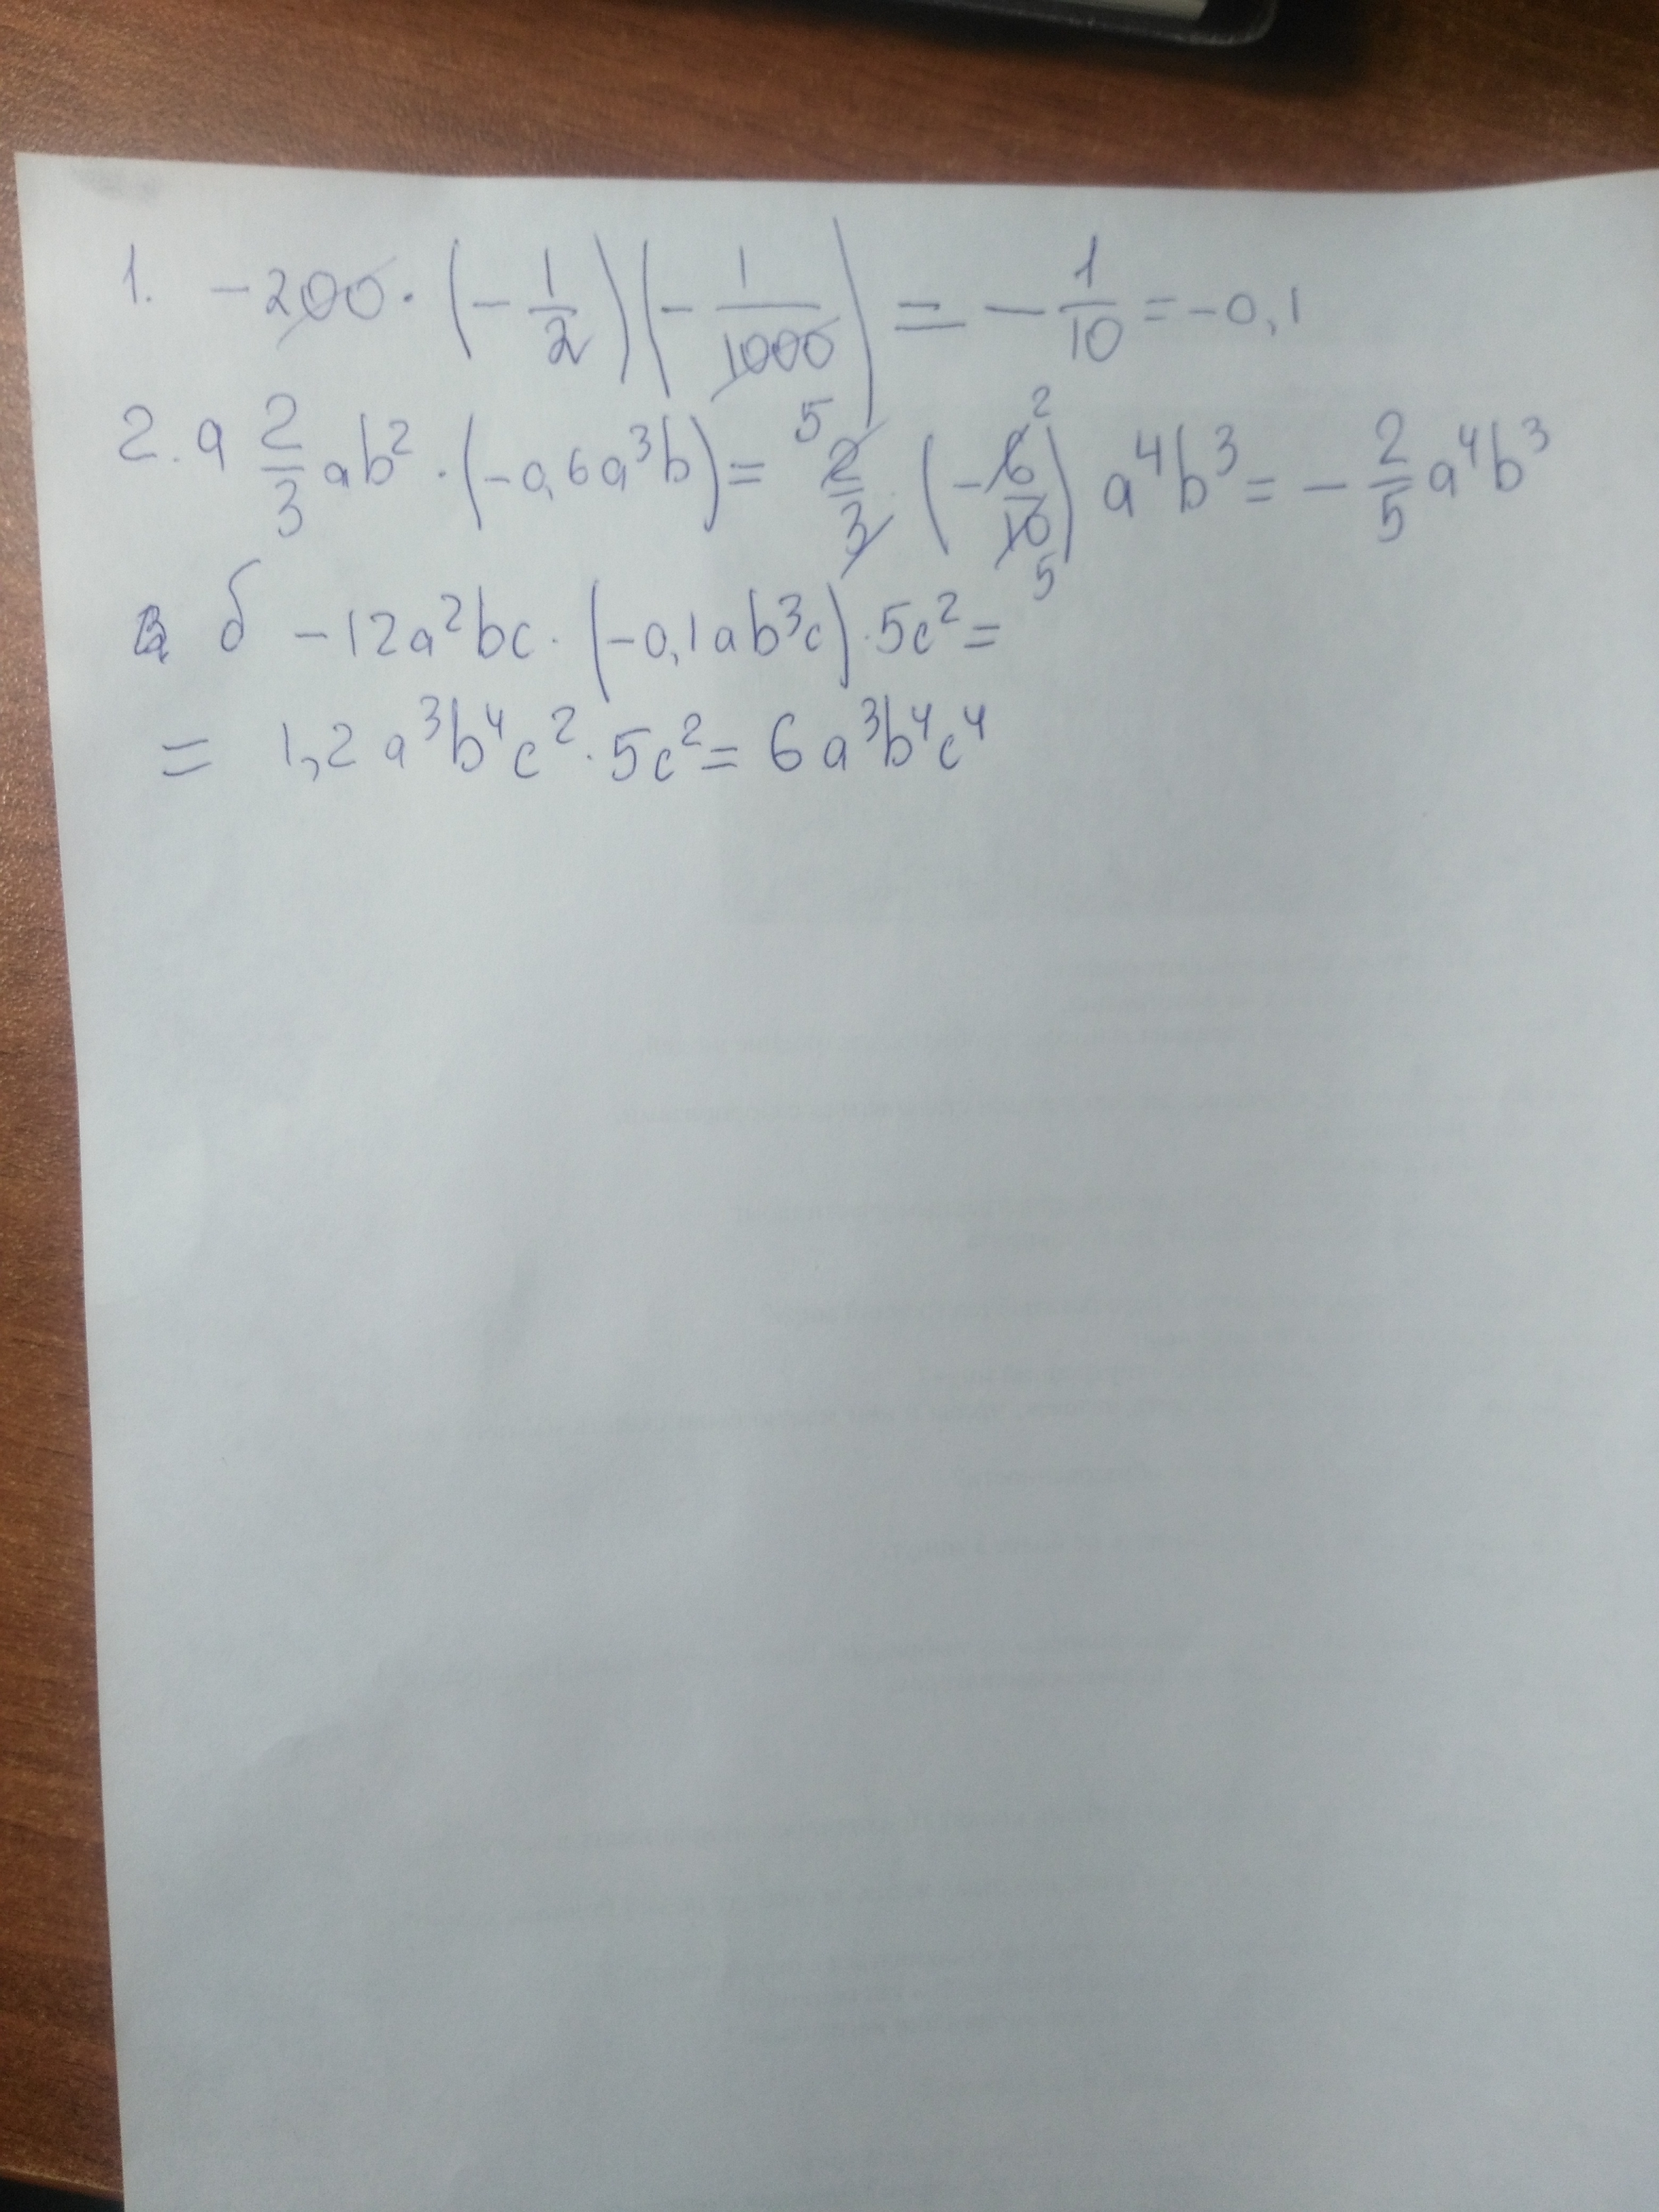 1. -200·(-1/2)(-1/1000) = -1/10 = -0,1
2. а 2/3 ab²·(-0,6a³b) = 5 2/3 · (-6/10) 2 5 a⁴b³ = -2/5 a⁴b³
б -12a²bc·(-0,1ab³c)·5c² =
= 1,2a³b⁴c²·5c² = 6a³b⁴c⁴